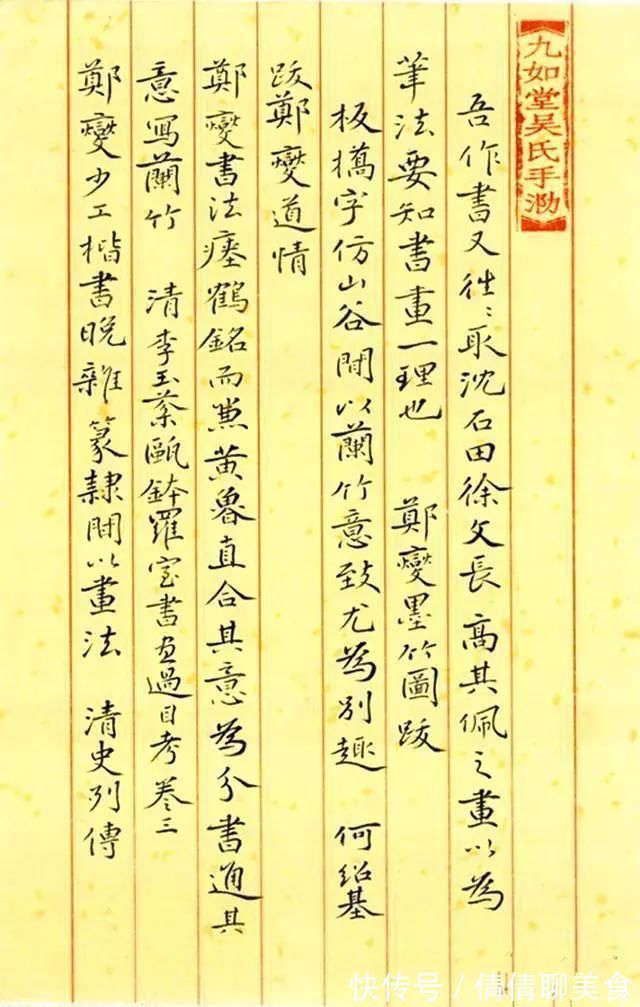 九如堂吴氏手泐
吾作書又往〻取沈石田徐文長高其佩之畫以為
筆法要知書畫一理也 鄭燮墨竹圖跋
板橋字仿山谷間以蘭竹意致尤為别趣 何紹基
跋鄭燮道情
鄭燮書法瘞鶴銘而兼黄魯直合其意為分書通其
意寫蘭竹 清李玉棻甌鉢羅室書畫過目考卷三
鄭燮少工楷書晚雜篆隸間以畫法 清史列傳
快传号／倩倩聊美食